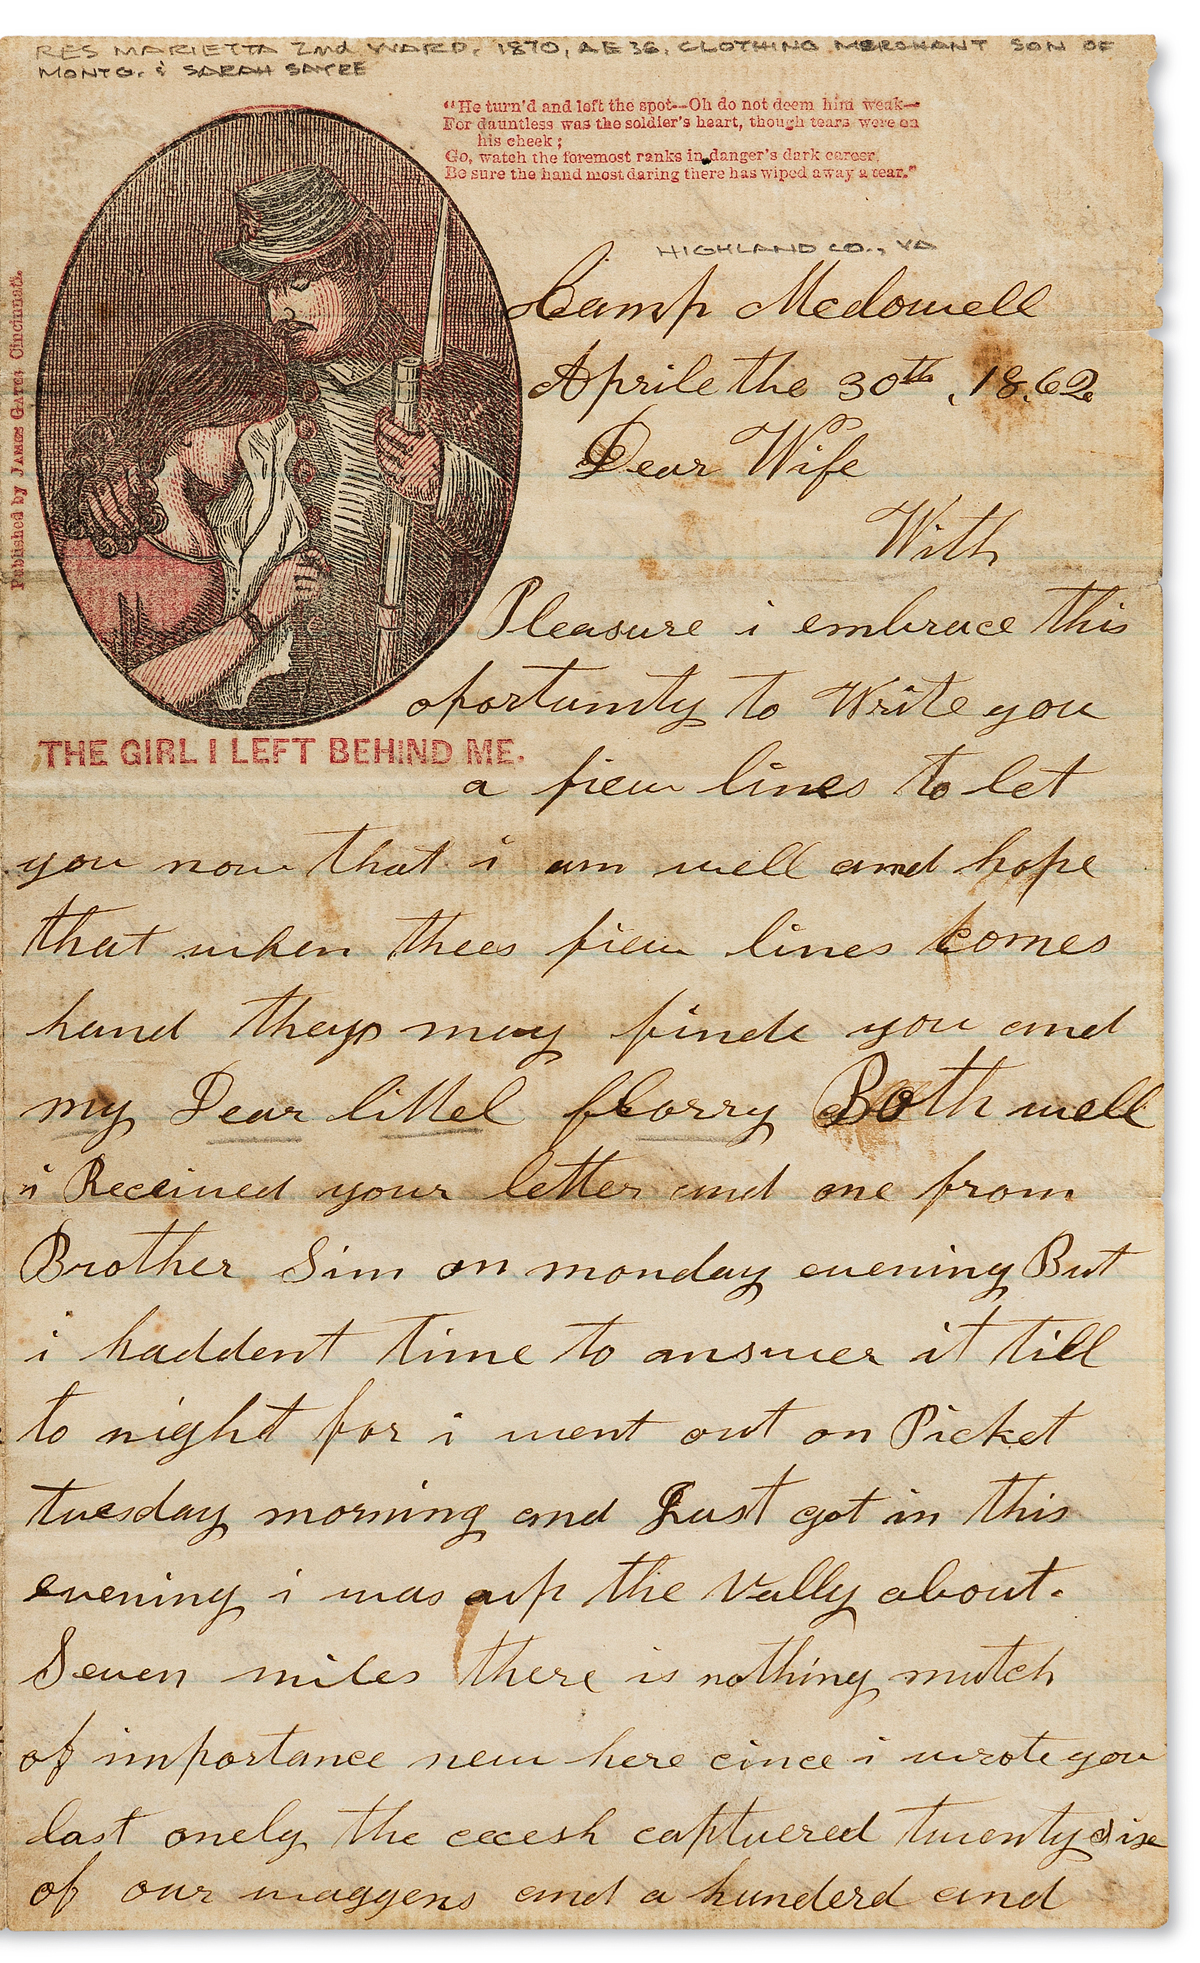 RES MARIETTA 2nd WARD, 1870, AE 36, CLOTHING MERCHANT SON OF
MONTG. & SARAH SAYRE
"He turn'd and left the spot—Oh do not deem him weak—
For dauntless was the soldier's heart, though tears were on
his cheek;
Go, watch the foremost ranks in danger's dark career,
Be sure the hand most daring there has wiped away a tear."
HIGHLAND CO., VA
Published by JAMES GATES, Cincinnati.
THE GIRL I LEFT BEHIND ME.
Camp Mcdowell
Aprile the 30th, 1862
Dear Wife
With
Pleasure i embrace this
oportunity to Write you
a fiew lines to let
you now that i am well and hope
that when thees fiew lines comes
hand they may finde you and
my Dear littel florry Both well
i Received your letter and one from
Brother Sim on monday evening But
i haddent time to answer it till
to night for i went out on Picket
tuesday morning and Just got in this
evening i was up the Vally about.
Seven miles there is nothing mutch
of importance new here cince i wrote you
last onely the cecesh captuered twenty six
of our waggens and a hunderd and